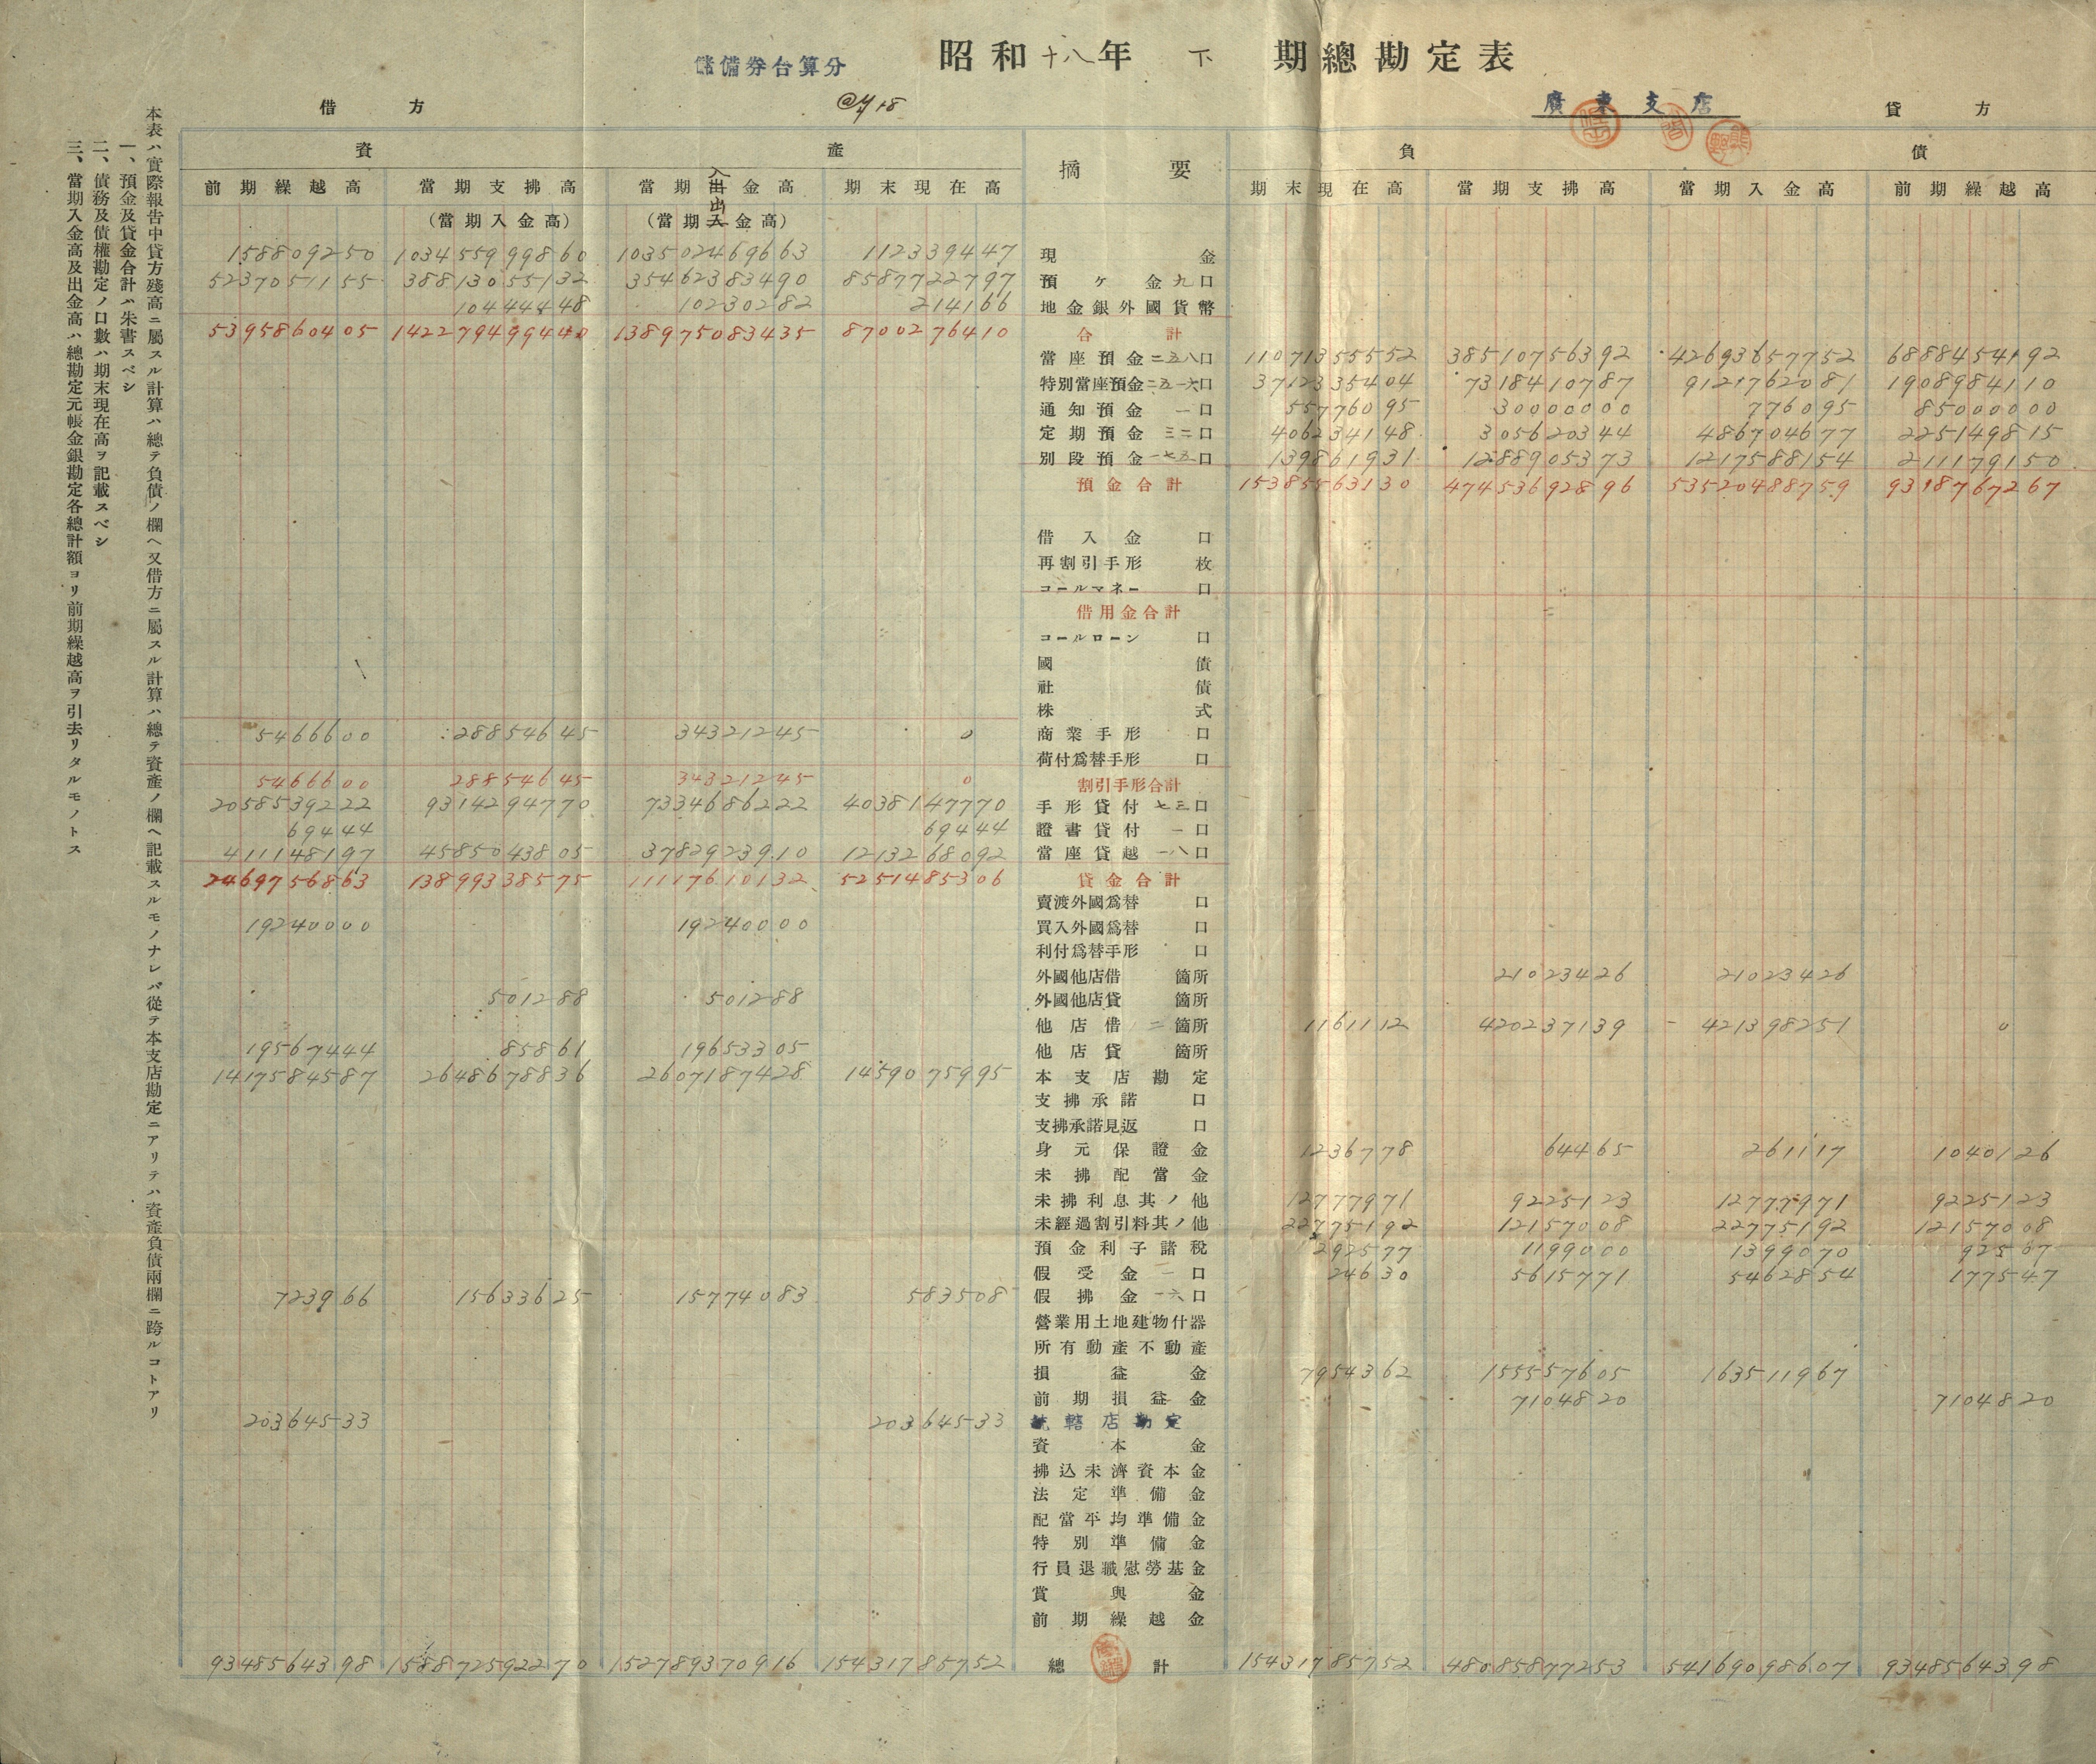 儲備券台算分
昭和十八年 下 期總勘定表
廣東支店
借方
貸方
資產
摘要
負債
前期繰越高 當期支拂高 當期入出金高 期末現在高 期末現在高 當期支拂高 當期入金高 前期繰越高
(當期入金高) (當期入出金高)
158809250 103455999860 103502469663 112339447 現金
5237051155 38813055132 35462383490 8587722797 預ケ金九口
10444448 10230282 214166 地金銀外國貨幣
5395860405 142279499440 138975083435 8700276410 合計
當座預金二五八口 11071355552 38510756392 42693657752 6888454192
特別當座預金二五一六口 3712335404 7318410787 9121762081 1908984110
通知預金一口 55776095 30000000 776095 85000000
定期預金三二口 406234148 305620344 486704677 225149815
別段預金一七五口 139861931 1288905373 1217588154 211179150
預金合計 15385563130 47453692896 53520488759 9318767267
借入金口
再割引手形枚
コールマネー口
借用金合計
コールローン口
國債
社債
株式
5466600 28854645 34321245 0 商業手形口
荷付爲替手形口
5466600 28854645 34321245 0 割引手形合計
2058539222 9314294770 7334686222 4038147770 手形貸付七三口
69444 69444 證書貸付一口
411148197 4585043805 3782923910 1213268092 當座貸越一八口
2469756863 13899338575 11117610132 5251485306 貸金合計
賣渡外國爲替口
19240000 19240000 買入外國爲替口
利付爲替手形口
外國他店借箇所 21023426 21023426
501288 501288 外國他店貸箇所
他店借二箇所 1161112 420237139 421398251 0
19567444 85861 19653305 他店貸箇所
1417584587 2648678836 2607187428 1459075995 本支店勘定
支拂承諾口
支拂承諾見返口
身元保證金 1236778 64465 261117 1040126
未拂配當金
未拂利息其ノ他 12777971 9225123 12777971 9225123
未經過割引料其ノ他 22775192 12157008 22775192 12157008
預金利子諸税 292577 1199000 1399070 92507
假受金一口 24630 5615771 5462854 177547
723966 15633625 15774083 583508 假拂金一六口
營業用土地建物什器
所有動產不動產
損益金 7954362 155557605 163511967
前期損益金 7104820 7104820
20364533 20364533 統轄店勘定
資本金
拂込未濟資本金
法定準備金
配當平均準備金
特別準備金
行員退職慰勞基金
賞與金
前期繰越金
9348564398 158872592270 152789370916 15431785752 總計 15431785752 48085877253 54169098607 9348564398
本表ハ實際報告中貸方殘高ニ屬スル計算ハ總テ負債ノ欄ヘ又借方ニ屬スル計算ハ總テ資產ノ欄ヘ記載スルモノナレバ從テ本支店勘定ニアリテハ資產負債兩欄ニ跨ルコトアリ
一、預金及貸金合計ハ朱書スベシ
二、債務及債權勘定ノ口數ハ期末現在高ヲ記載スベシ
三、當期入金高及出金高ハ總勘定元帳金銀勘定各總計額ヨリ前期繰越高ヲ引去リタルモノトス